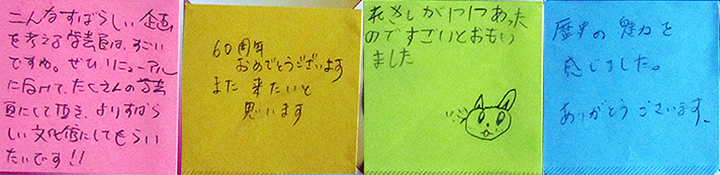 こんなすばらしい企画
を考える学芸員は、すごい
ですね。ぜひリニューアル
に向けて、たくさんの学芸
員にして頂き、よりすばら
しい文化価にしてもらい
たいです!!
60周年
おめでとうございます
また 来たいと
思います
れきしがにつにつあった
のですごいとおもい
ました
歴史の魅力を
感じました。
ありがとうございます。